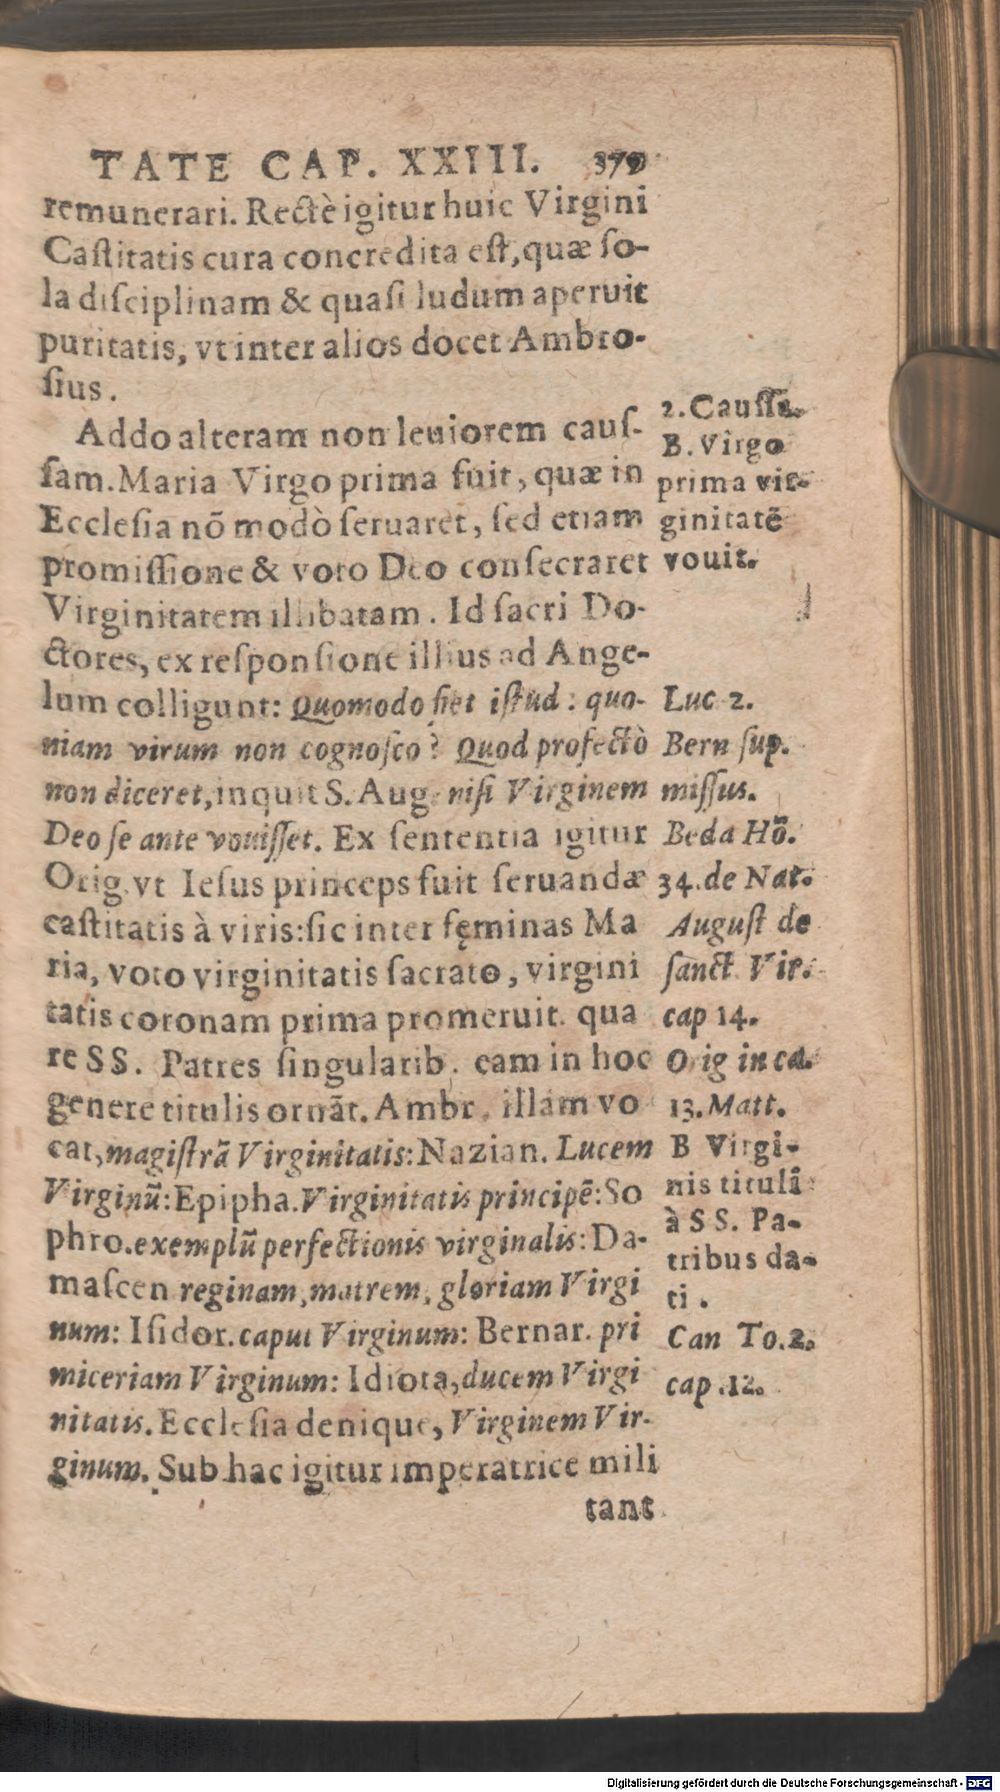 TATE CAP. XXIII. 379
remunerari. Rectè igitur huic Virgini
Caſtitatis cura concredita eſt, quæ ſo-
la diſciplinam & quaſi ludum aperuit
puritatis, vt inter alios docet Ambro-
ſius.
Addo alteram non leuiorem cauſ-
ſam. Maria Virgo prima fuit, quæ in
Eccleſia nõ modò ſeruaret, ſed etiam
promiſſione & voto Deo conſecraret
Virginitatem illibatam. Id ſacri Do-
ctores, ex reſponſione illius ad Ange-
lum colligunt: Quomodo fiet iſtud: quo-
niam virum non cognoſco? Quod profectò
non diceret, inquit S. Aug. niſi Virginem
Deo ſe ante vouiſſet. Ex ſententia igitur
Orig. vt Ieſus princeps fuit ſeruandæ
caſtitatis à viris: ſic inter fęminas Ma
ria, voto virginitatis ſacrato, virgini
tatis coronam prima promeruit. qua
re SS. Patres ſingularib. eam in hoc
genere titulis ornãt. Ambr. illam vo
cat, magiſtrã Virginitatis: Nazian. Lucem
Virginũ: Epipha. Virginitatis principẽ: So
phro. exemplũ perfectionis virginalis: Da-
maſcen reginam, matrem, gloriam Virgi
num: Iſidor. caput Virginum: Bernar. pri
miceriam Virginum: Idiota, ducem Virgi
nitatis. Eccleſia denique, Virginem Vir-
ginum. Sub hac igitur imperatrice mili
tant
2. Cauſſa.
B. Virgo
prima vir-
ginitatẽ
vouit.
Luc 2.
Bern ſup.
miſſus.
Beda Hõ.
34. de Nat.
Auguſt de
ſanct. Vir.
cap 14.
Orig in ca.
13. Matt.
B Virgi-
nis tituli
à SS. Pa-
tribus da-
ti.
Can To. 2.
cap. 12.
Digitalisierung gefördert durch die Deutsche Forschungsgemeinschaft - DFG